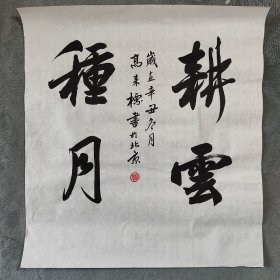 耕雲
種月
歲在辛丑冬月
高來標書於北京